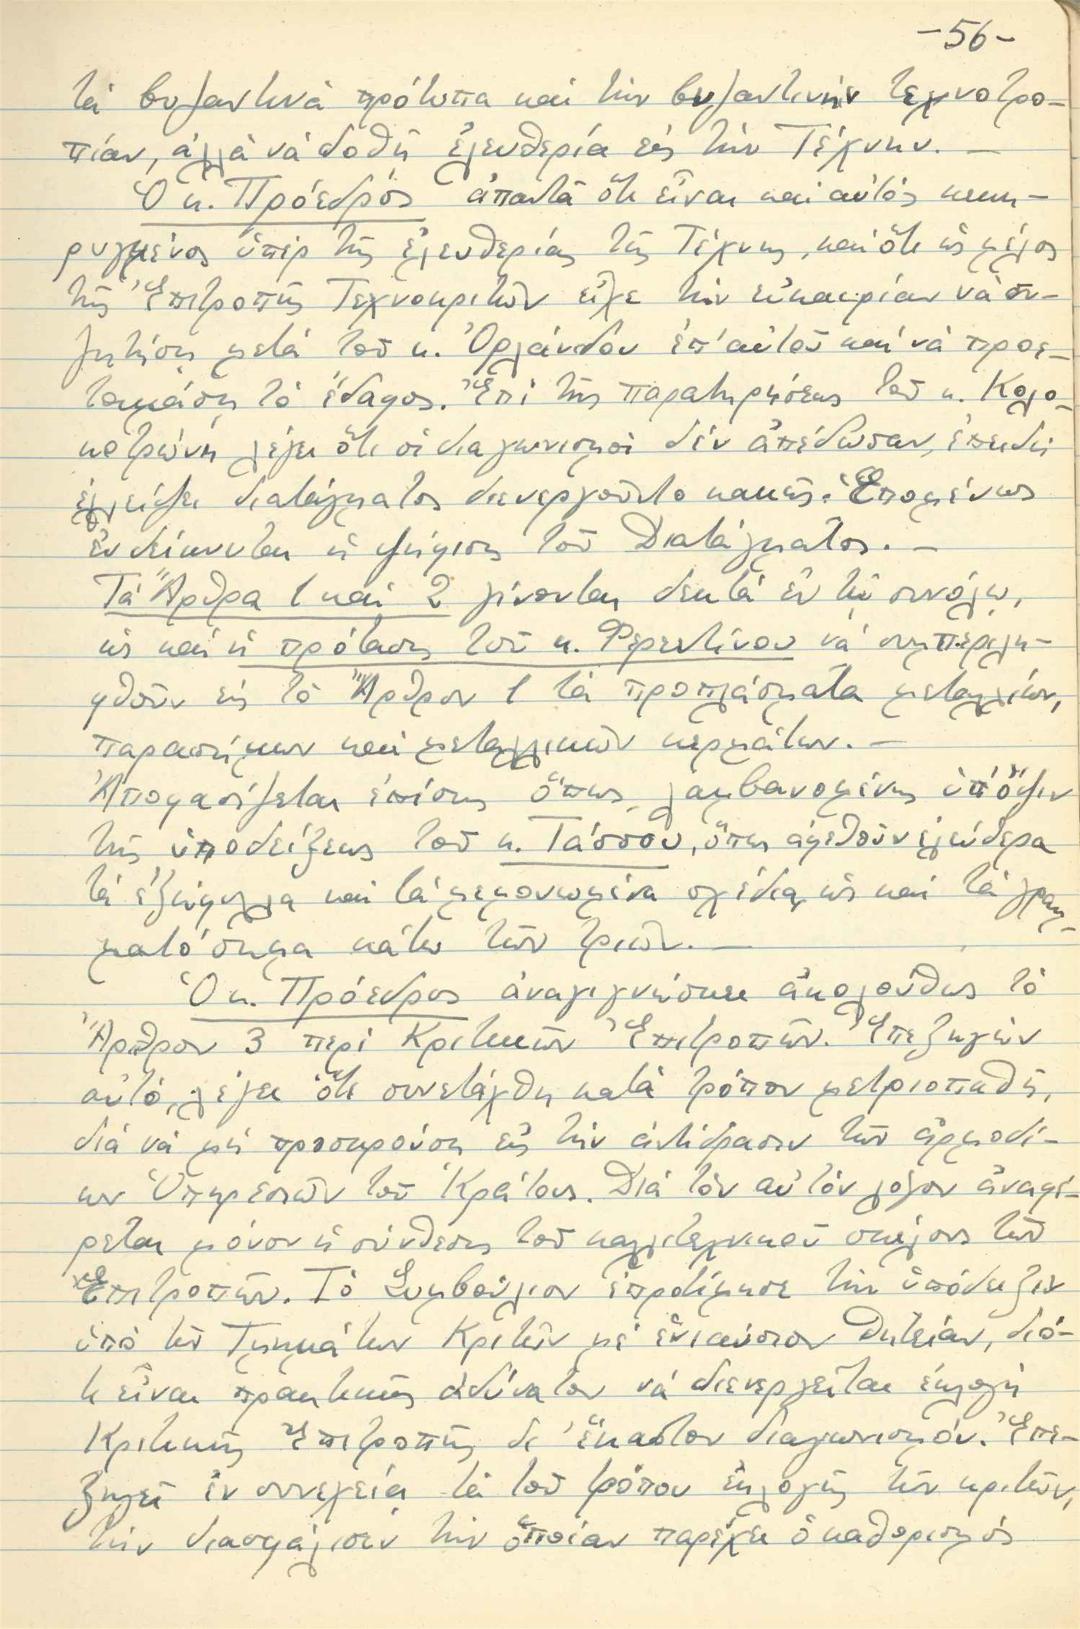 -56-
τά βυζαντινά πρότυπα καί τήν βυζαντινήν τεχνοτρο-
πίαν, ἀλλά νά δοθῆ ἐλευθερία εἰς τήν Τέχνην. —
Ὁ κ. Πρόεδρος ἀπαντᾶ ὅτι εἶναι καί αὐτός κεκη-
ρυγμένος ὑπέρ τῆς ἐλευθερίας τῆς Τέχνης, καί ὅτι ὡς μέλος
τῆς Ἐπιτροπῆς Τεχνοκριτῶν εἶχε τήν εὐκαιρίαν νά συ-
ζητήση μετά τοῦ κ. Ὀρλάνδου ἐπ' αὐτοῦ καί νά προε-
τοιμάση τό ἔδαφος. Ἐπί τῆς παρατηρήσεως τοῦ κ. Κολο-
κοτρώνη λέγει ὅτι οἱ διαγωνισμοί δέν ἀπέδωσαν, ἐπειδή
ἐλλείψει διατάγματος διενεργοῦντο κακῶς. Ἑπομένως
ἐνδείκνυται ἡ ψήφισις τοῦ Διατάγματος. —
Τά Ἄρθρα 1 καί 2 γίνονται δεκτά ἐν τῷ συνόλῳ,
ὡς καί ἡ πρότασις τοῦ κ. Φερεντίνου νά συμπεριλη-
φθοῦν εἰς τό Ἄρθρον 1 τά προπλάσματα μεταλλίων,
παρασήμων καί μεταλλικῶν κερμάτων. —
Ἀποφασίζεται ἐπίσης ὅπως, λαμβανομένης ὑπ' ὄψιν
τῆς ὑποδείξεως τοῦ κ. Τάσσου, ὅπως ἀφεθοῦν ἐλεύθερα
τά ἐξώφυλλα καί τά μεμονωμένα σχέδια, ὡς καί τά γραμ-
ματόσημα κάτω τῶν τριῶν. —
Ὁ κ. Πρόεδρος ἀναγιγνώσκει ἀκολούθως τό
Ἄρθρον 3 περί Κριτικῶν Ἐπιτροπῶν. Ἐπεξηγῶν
αὐτό, λέγει ὅτι συνετάχθη κατά τρόπον μετριοπαθῆ,
διά νά μή προσκρούση εἰς τήν ἀντίδρασιν τῶν ἁρμοδί-
ων Ὑπηρεσιῶν τοῦ Κράτους. Διά τόν αὐτόν λόγον ἀναφέ-
ρεται μόνον ἡ σύνθεσις τοῦ καλλιτεχνικοῦ σκέλους τῶν
Ἐπιτροπῶν. Τό Συμβούλιον ἐπροτίμησε τήν ὑπόδειξιν
ὑπό τῶν Τμημάτων Κριτῶν μέ ἐνιαύσιον θητείαν, διό-
τι εἶναι πρακτικῶς ἀδύνατον νά διενεργεῖται ἐκλογή
Κριτικῆς Ἐπιτροπῆς δι' ἕκαστον διαγωνισμόν. Ἐπε-
ξηγεῖ ἐν συνεχεία τά τοῦ τρόπου ἐκλογῆς τῶν κριτῶν,
τήν διασφάλισιν τήν ὁποίαν παρέχει ὁ καθορισμός